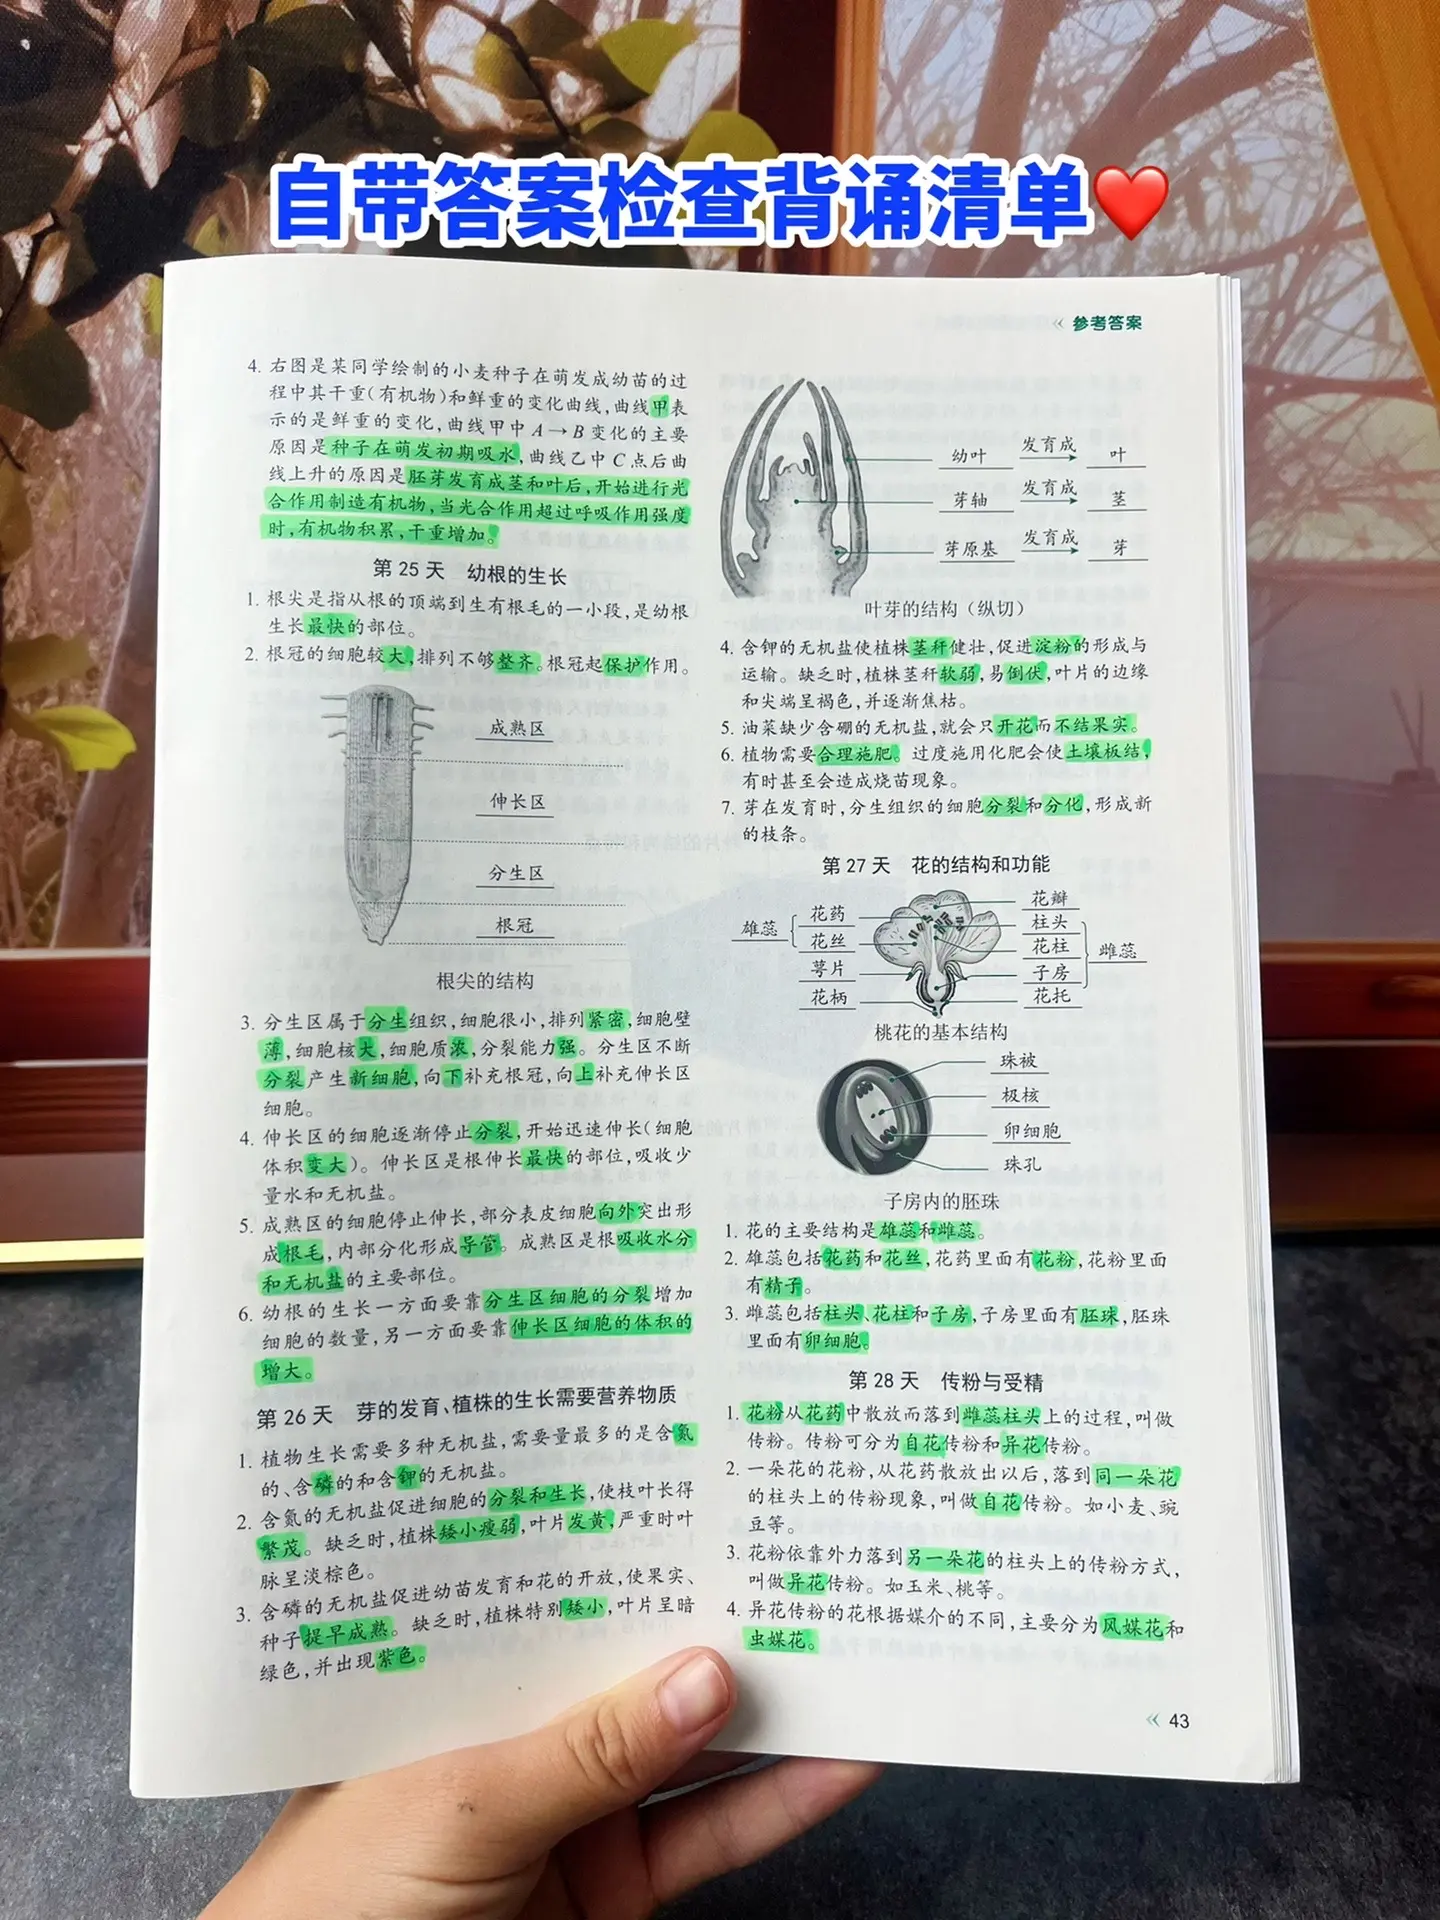 自带答案检查背诵清单
参考答案
4. 右图是某同学绘制的小麦种子在萌发成幼苗的过
程中其干重(有机物)和鲜重的变化曲线,曲线甲表
示的是鲜重的变化,曲线甲中 A→B 变化的主要
原因是种子在萌发初期吸水,曲线乙中 C 点后曲
线上升的原因是胚芽发育成茎和叶后,开始进行光
合作用制造有机物,当光合作用超过呼吸作用强度
时,有机物积累,干重增加。
第 25 天 幼根的生长
1. 根尖是指从根的顶端到生有根毛的一小段,是幼根
生长最快的部位。
2. 根冠的细胞较大,排列不够整齐。根冠起保护作用。
成熟区
伸长区
分生区
根冠
根尖的结构
3. 分生区属于分生组织,细胞很小,排列紧密,细胞壁
薄,细胞核大,细胞质浓,分裂能力强。分生区不断
分裂产生新细胞,向下补充根冠,向上补充伸长区
细胞。
4. 伸长区的细胞逐渐停止分裂,开始迅速伸长(细胞
体积变大)。伸长区是根伸长最快的部位,吸收少
量水和无机盐。
5. 成熟区的细胞停止伸长,部分表皮细胞向外突出形
成根毛,内部分化形成导管。成熟区是根吸收水分
和无机盐的主要部位。
6. 幼根的生长一方面要靠分生区细胞的分裂增加
细胞的数量,另一方面要靠伸长区细胞的体积的
增大。
第 26 天 芽的发育、植株的生长需要营养物质
1. 植物生长需要多种无机盐,需要量最多的是含氮
的、含磷的和含钾的无机盐。
2. 含氮的无机盐促进细胞的分裂和生长,使枝叶长得
繁茂。缺乏时,植株矮小瘦弱,叶片发黄,严重时叶
脉呈淡棕色。
3. 含磷的无机盐促进幼苗发育和花的开放,使果实、
种子提早成熟。缺乏时,植株特别矮小,叶片呈暗
绿色,并出现紫色。
幼叶 发育成 叶
芽轴 发育成 茎
芽原基 发育成 芽
叶芽的结构(纵切)
4. 含钾的无机盐使植株茎秆健壮,促进淀粉的形成与
运输。缺乏时,植株茎秆软弱,易倒伏,叶片的边缘
和尖端呈褐色,并逐渐焦枯。
5. 油菜缺少含硼的无机盐,就会只开花而不结果实。
6. 植物需要合理施肥。过度施用化肥会使土壤板结,
有时甚至会造成烧苗现象。
7. 芽在发育时,分生组织的细胞分裂和分化,形成新
的枝条。
第 27 天 花的结构和功能
花药 花瓣
雄蕊 柱头
花丝 花柱 雌蕊
萼片 子房
花柄 花托
桃花的基本结构
珠被
极核
卵细胞
珠孔
子房内的胚珠
1. 花的主要结构是雄蕊和雌蕊。
2. 雄蕊包括花药和花丝,花药里面有花粉,花粉里面
有精子。
3. 雌蕊包括柱头、花柱和子房,子房里面有胚珠,胚珠
里面有卵细胞。
第 28 天 传粉与受精
1. 花粉从花药中散放而落到雌蕊柱头上的过程,叫做
传粉。传粉可分为自花传粉和异花传粉。
2. 一朵花的花粉,从花药散放出以后,落到同一朵花
的柱头上的传粉现象,叫做自花传粉。如小麦、豌
豆等。
3. 花粉依靠外力落到另一朵花的柱头上的传粉方式,
叫做异花传粉。如玉米、桃等。
4. 异花传粉的花根据媒介的不同,主要分为风媒花和
虫媒花。
43